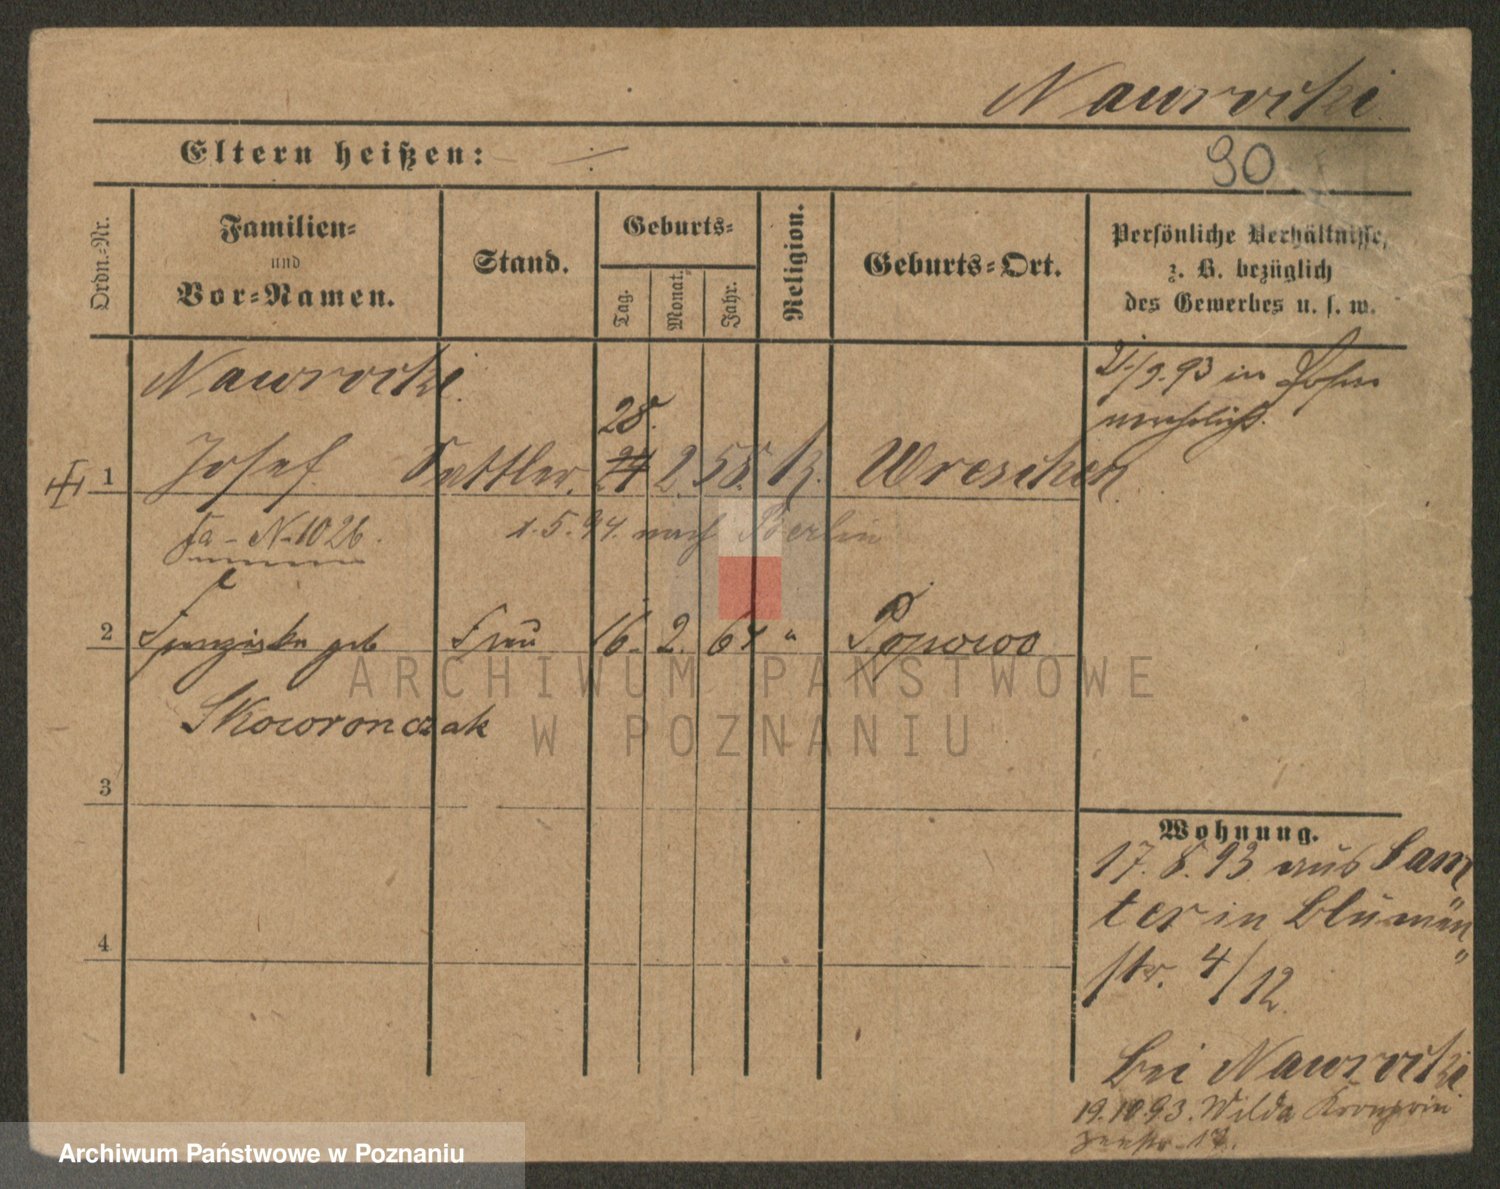 Nawrocki
Eltern heißen:
90
Ordn.-Nr.
Familien-
und
Vor-Namen.
Stand.
Geburts-
Tag.
Monat.
Jahr.
Religion.
Geburts-Ort.
Persönliche Verhältnisse,
z. B. bezüglich
des Gewerbes u. s. w.
Nawrocki
28.
1 Josef Sattler. 24 2. 58. K. Wreschen
21/9.93 in Posen
verehelicht.
Fa - N. 1026.
1.5.94. nach Berlin
2 Franziska geb Frau 16. 2. 64 " Popowo
Skowronczak
3
4
Wohnung.
17.8.93 aus Sam
ter in Blumen
str. 4/12.
bei Nawrocki
19.10.93. Wilda Kronprin
zenstr. 17.
ARCHIWUM PAŃSTWOWE
W POZNANIU
Archiwum Państwowe w Poznaniu